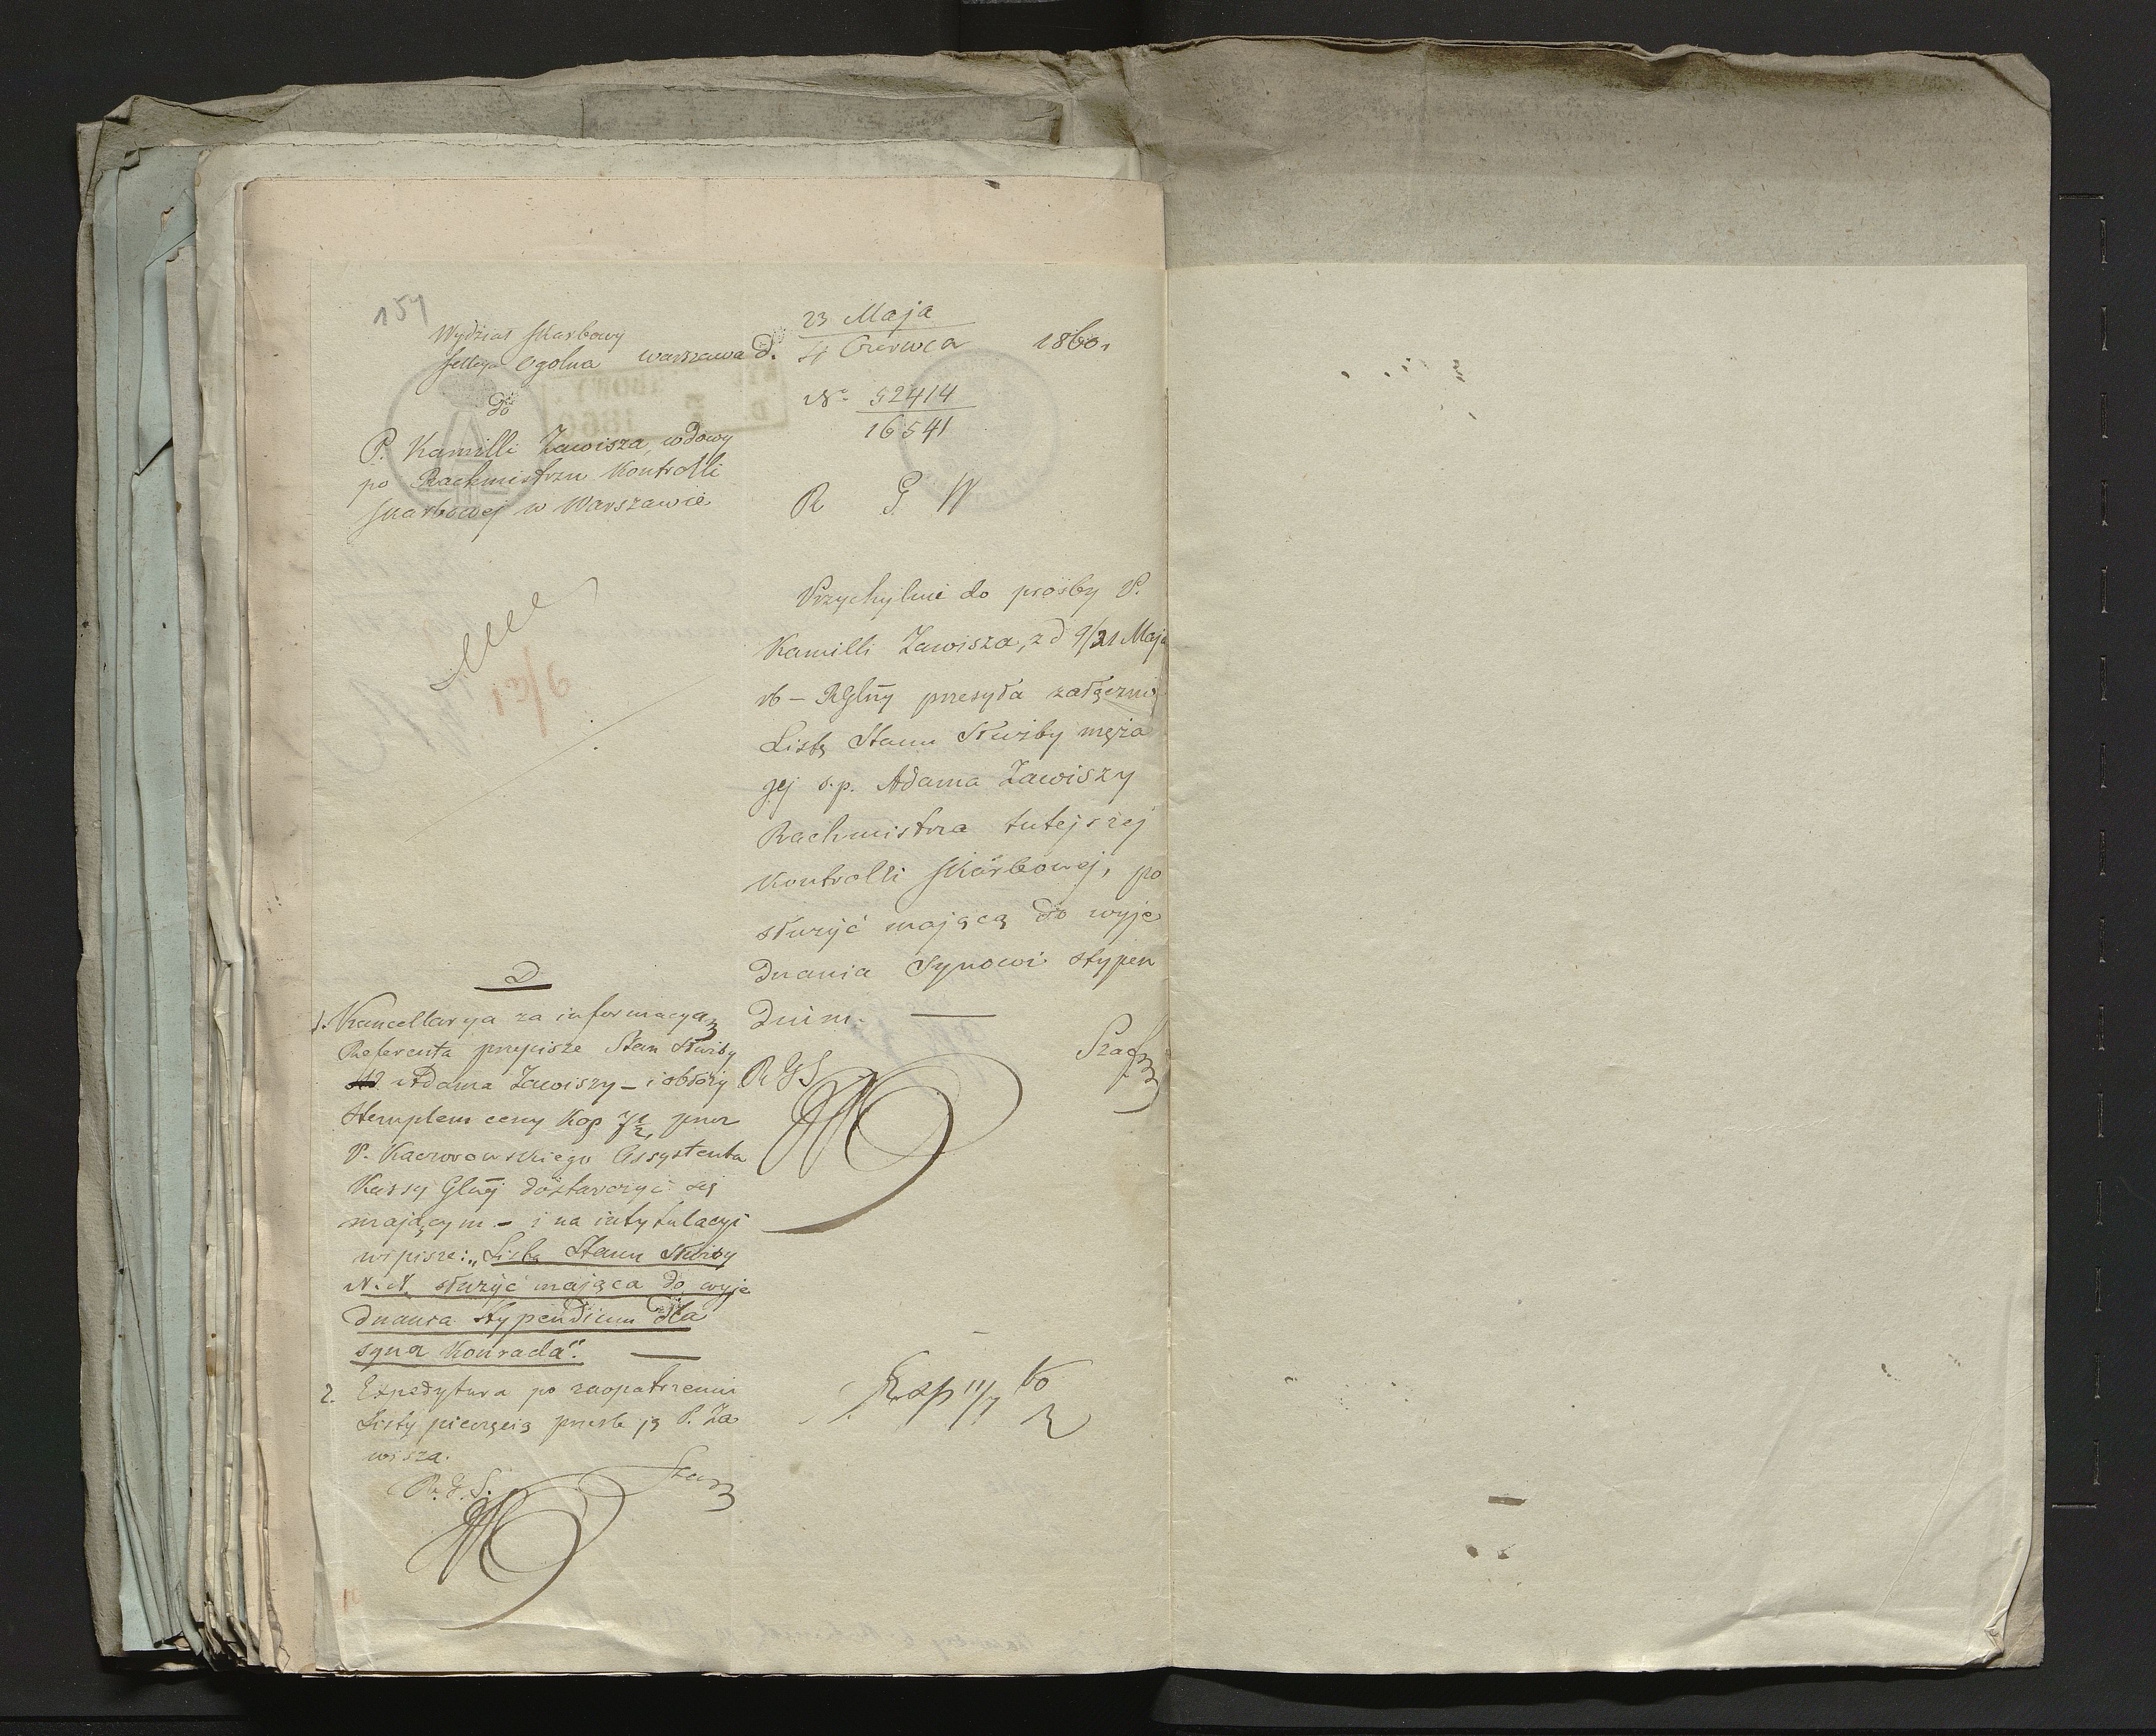 154
Wydział Skarbowy
Sekcya Ogolna Warszawa d. 23 Maja / 4 Czerwca 1860.
do
No 52414 / 16541
P. Kamilli Zawisza, wdowy
po Rachmistrzu Kontrolli
Skarbowej w Warszawie
R G W
Przychylnie do prośby P.
Kamilli Zawisza, z d 9/21 Maja
rb – RGlny przesyła załącznie
Listę Stanu Służby męża
jej s.p. Adama Zawiszy
Rachmistrza tutejszej
Kontrolli Skarbowej, po
służyć mającą do wyje
dnania Synowi stypen
dium. —
R G S
D
1. Kancellarya za informacyą
Referenta przepisze Stan Służby
Adama Zawiszy – i obłoży
Stemplem ceny Kop 7½, przez
P. Kaczorowskiego Assystenta
Kassy Glnej dostarczyć się
mającym – i na intytulacyi
wpisze: „Lista Stanu Służby
N. N. służyć mająca do wyje
dnania Stypendium dla
syna Konrada". —
2. Expedytura po zaopatrzeniu
Listy pieczęcią prześle ją P. Za
wisza.
R. G. S.
Exp 11/7